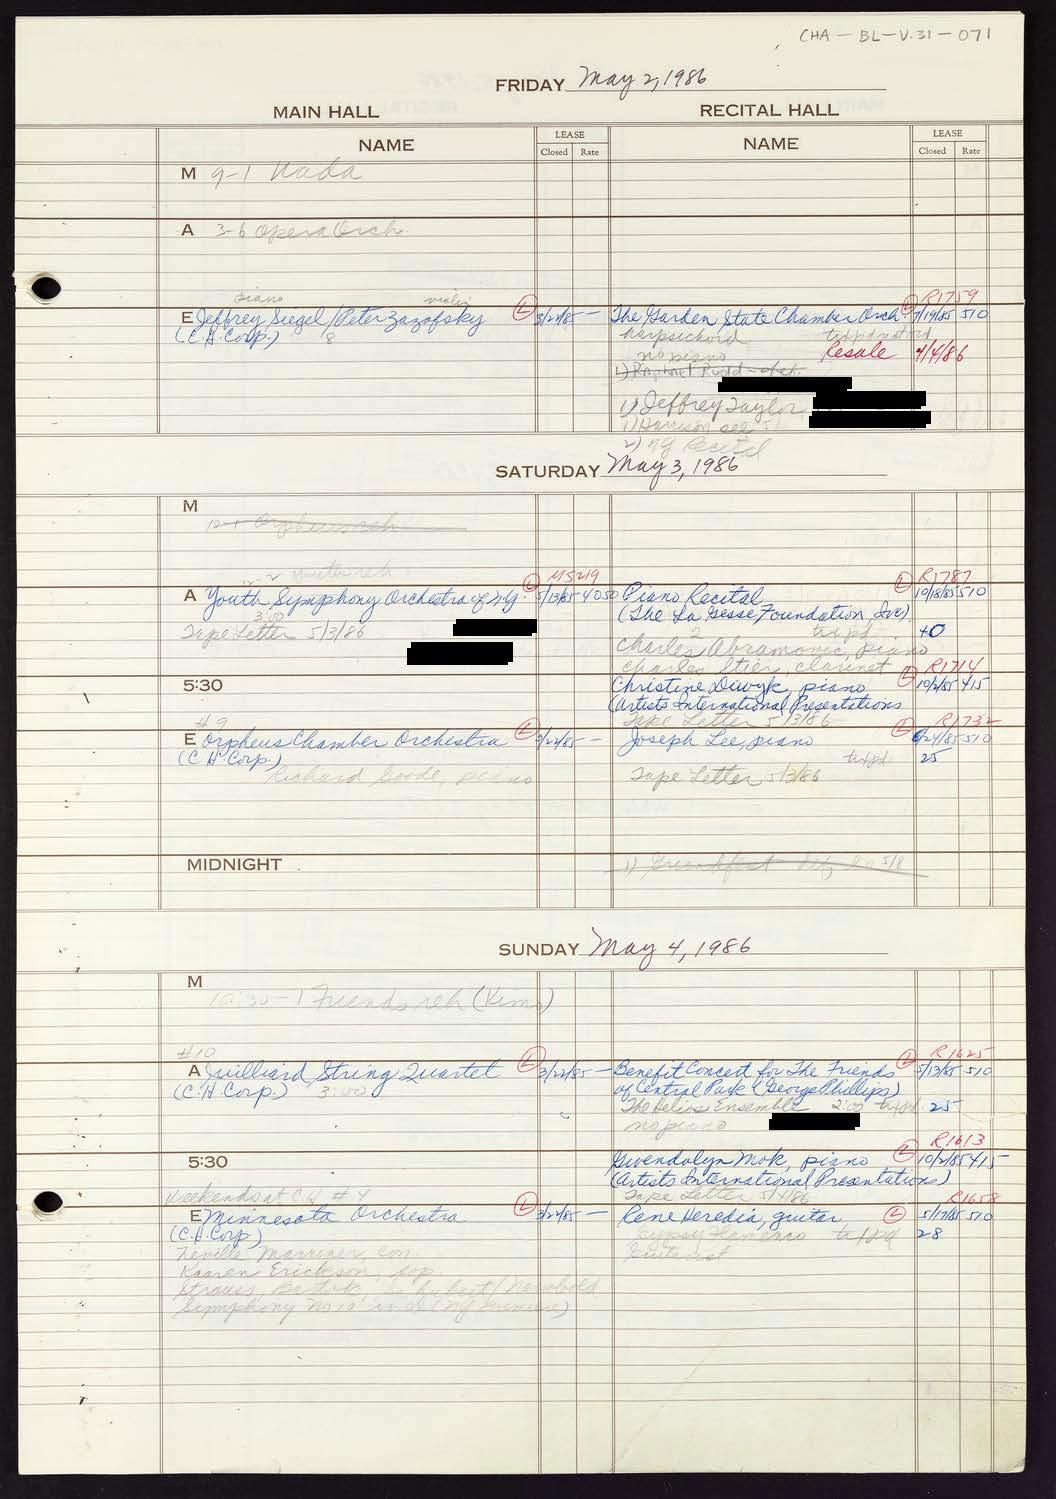 CHA-BL-V.31-071
FRIDAY May 2, 1986
MAIN HALL RECITAL HALL
NAME LEASE NAME LEASE
Closed Rate Closed Rate
M 9-1 Nada
A 3-6 Opera Orch.
piano violin L R1759
E Jeffrey Siegel/Peter Zazofsky L 3/22/85 — The Garden State Chamber Orch. 7/19/85 510
(C.H. Corp.) 8 harpsichord
no piano Resale 4/4/86
1) Jeffrey Taylor
1) Harrison see
2) NY Recital
SATURDAY May 3, 1986
M
12-1 Orpheus reh
M5219 L R1787
A Youth Symphony Orchestra of N.Y. L 5/13/85 4050 Piano Recital 10/18/85 510
3:00 (The La Gesse Foundation, Inc).
Tape Letter 5/3/86 2 tix pd. 40
Charles Abramovic, piano
Charles Stier, clarinet R1714
5:30 Christine Diwyk, piano L 10/2/85 415
(Artists International Presentations
#9 Tape Letter 5/3/86 R1732
E Orpheus Chamber Orchestra L 3/22/85 — Joseph Lee, piano L 6/24/85 510
(C.H. Corp.) tix pd 25
Richard Goode, piano Tape Letter 5/3/86
MIDNIGHT
SUNDAY May 4, 1986
M
10:30-1 Friends reh (Kimo)
#10 R1625
A Juilliard String Quartet L 3/22/85 — Benefit Concert for The Friends L 5/13/85 510
(C.H. Corp.) 3:00 of Central Park (George Phillips)
The Helios Ensemble 2:00 tix pd. 25
no piano
R1613
5:30 Gwendolyn Mok, piano L 10/2/85 415
(Artists International Presentations)
Weekends at C.H. #4 Tape Letter 5/4/86 R1658
E Minnesota Orchestra L 3/22/85 — Rene Heredia, guitar L 5/17/85 510
(C.H. Corp) Gypsy Flamenco tix pd 28
Neville Marriner, con. Guitarist
Kaaren Erickson, sop.
Strauss, Bartok, Schubert/Newbould
Symphony No 10 in D (NY Premiere)